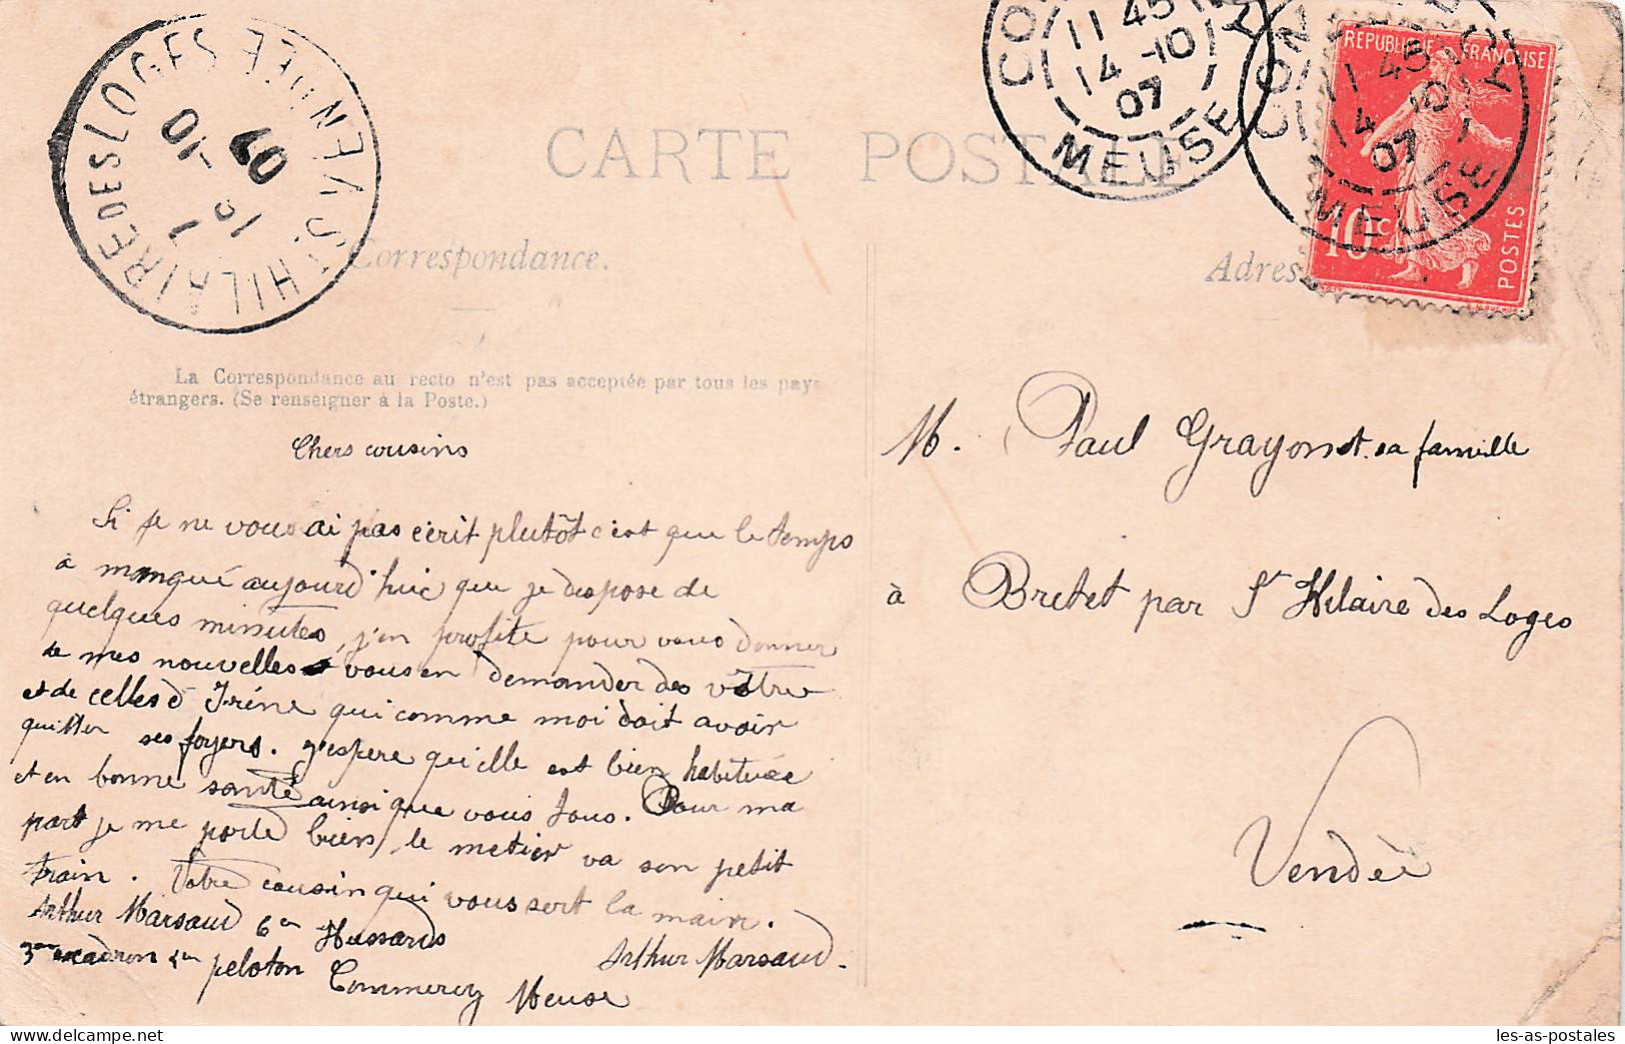 ST HILAIRE DES LOGES VENDÉE
10 -10
07
CARTE POSTALE
11 45
14 -10
07
MEUSE
11 45
4 10
07
MEUSE
REPUBLIQUE FRANÇAISE
10 c
POSTES
Correspondance.
Adres
La Correspondance au recto n'est pas acceptée par tous les pays
étrangers. (Se renseigner à la Poste.)
Chers cousins
Si je ne vous ai pas écrit plutôt c'est que le temps
a manqué aujourd'huie que je dispose de
quelques minutes, j'en profite pour vous donner
de mes nouvelles et vous en demander des vôtres
et de celles d'Irène qui comme moi doit avoir
quitter ses foyers. j'espère qu'elle est bien habituée
et en bonne santé ainsi que vous tous. Pour ma
part je me porte bien, le metier va son petit
train. Votre cousin qui vous sert la main.
Arthur Marsaud
Arthur Marsaud 6en Hussards
3me escadron 4en peloton Commercy Meuse
M. Paul Grayon et sa famille
à Bretet par St Hilaire des Loges
Vendée
les-as-postales